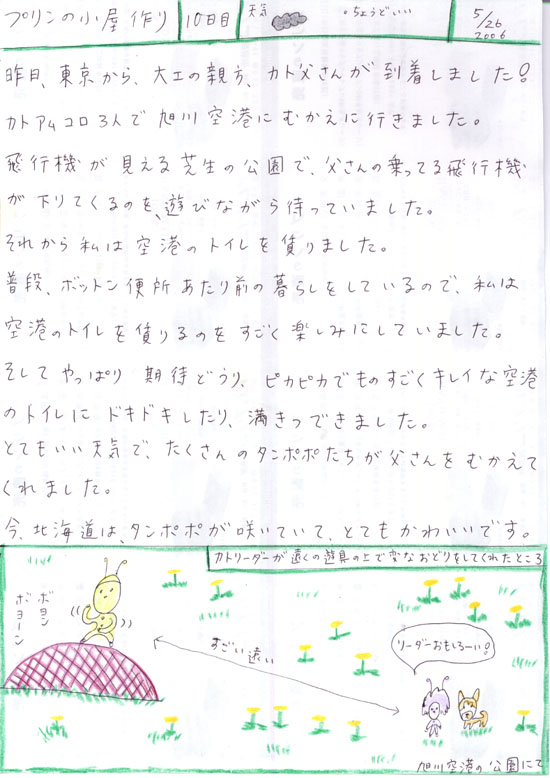 プリンの小屋作り 10日目 天気 ・ちょうどいい 5/26 2006
昨日、東京から、大工の親方、カト父さんが到着しました!
カトアムコロ3人で旭川空港にむかえに行きました。
飛行機が見える芝生の公園で、父さんの乗ってる飛行機
が下りてくるのを、遊びながら待っていました。
それから私は空港のトイレを借りました。
普段、ボットン便所あたり前の暮らしをしているので、私は
空港のトイレを借りるのをすごく楽しみにしていました。
そしてやっぱり期待どうり、ピカピカでものすごくキレイな空港
のトイレにドキドキしたり、満きつできました。
とてもいい天気で、たくさんのタンポポたちが父さんをむかえて
くれました。
今、北海道は、タンポポが咲いていて、とてもかわいいです。
カトリーダーが遠くの遊具の上で変なおどりをしてくれたところ
ボヨン
ボヨーン
すごい遠い
リーダーおもしろーい!
旭川空港の公園にて